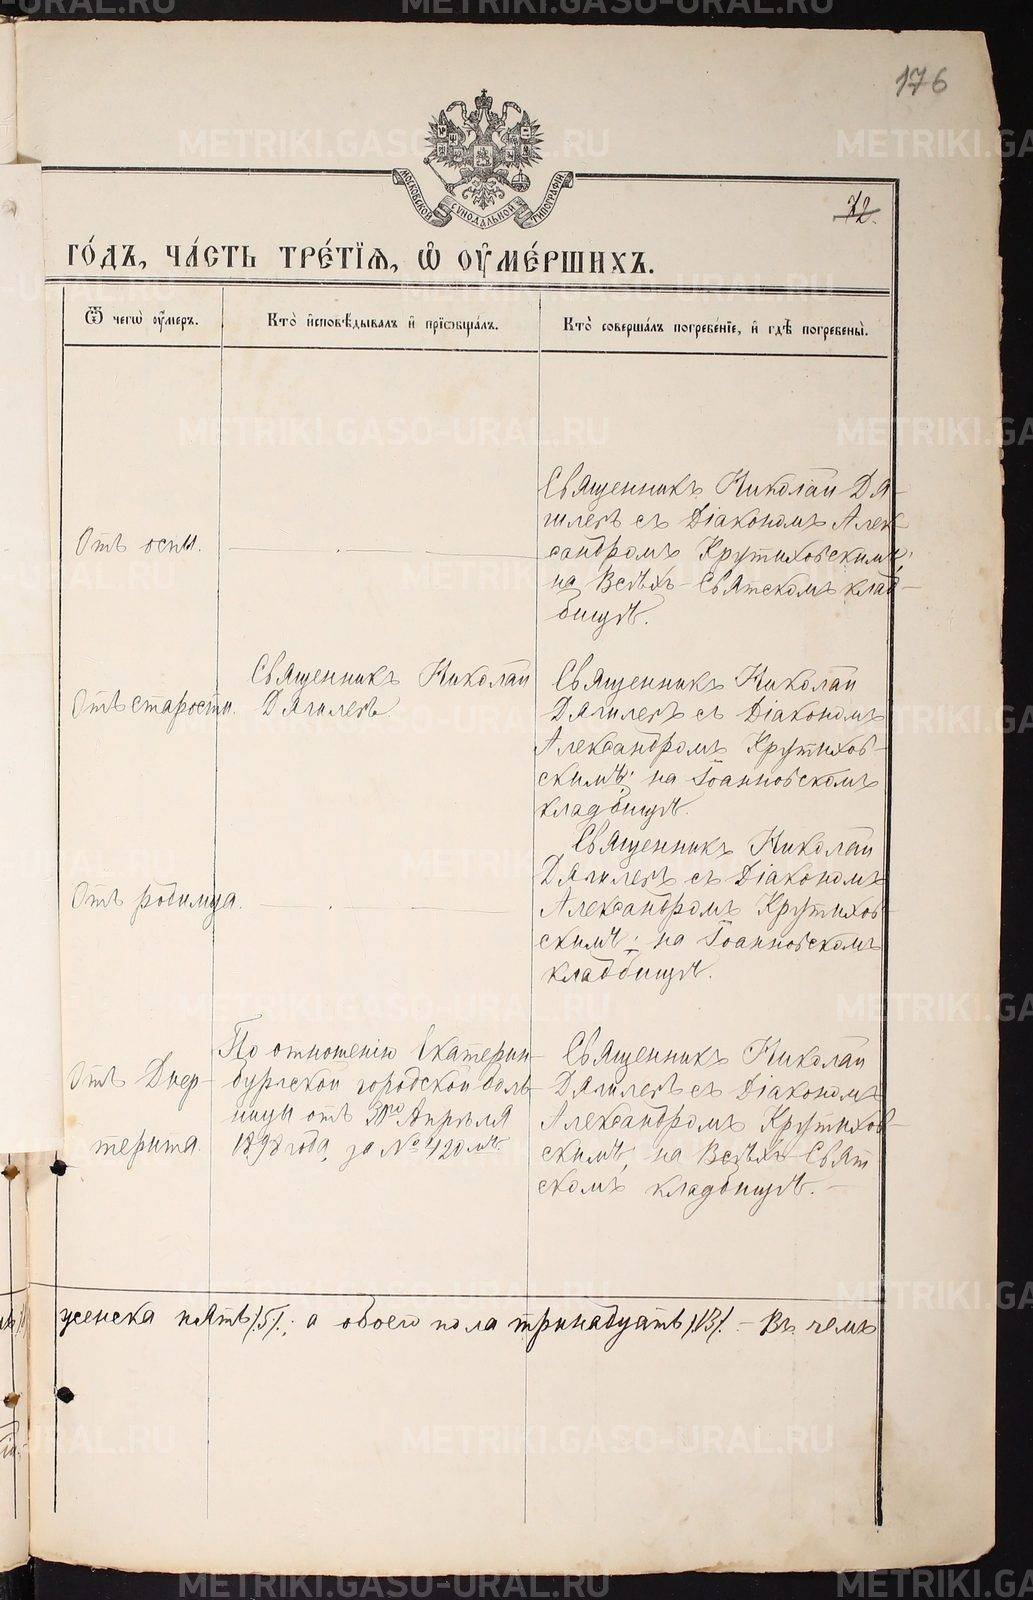 176
МОСКОВСКОЙ СѴНОДАЛЬНОЙ ТИПОГРАФІИ
72.
ГО́ДЪ, ЧА́СТЬ ТРЕ́ТІѦ, Ѽ ОУ҆МЕ́РШИХЪ.
Ѿ чегѡ̀ оу҆́меръ.
Кто̀ и҆сповѣ́дывалъ и҆ прїѡбща́лъ.
Кто̀ соверша́лъ погребе́нїе, и҆ гдѣ̀ погребены̀.
Священникъ Николай Дя-
гилевъ съ Діакономъ Алек
Отъ оспы.
сандромъ Крутиховскимъ;
на Всѣхъ-Святскомъ клад-
бищѣ.
Священникъ Николай
Дягилевъ
Отъ старости.
Священникъ Николай
Дягилевъ съ Діакономъ
Александромъ Крутихов-
скимъ; на Іоанновскомъ
кладбищѣ.
Отъ родимца.
Священникъ Николай
Дягилевъ съ Діакономъ
Александромъ Крутихов-
скимъ; на Іоанновскомъ
кладбищѣ.
Отъ
терита.
По отношенію Екатерин-
бургской городской боль
ницы отъ Апрѣля
1898 года, за № 420мъ.
Священникъ Николай
Дягилевъ съ Діакономъ
Александромъ Крутихов-
скимъ, на Всѣхъ-Свят
скомъ кладбищѣ. —
женска пять /5/.; а обоего пола тринадцать /13/. - Въ чемъ
METRIKI.GASO-URAL.RU